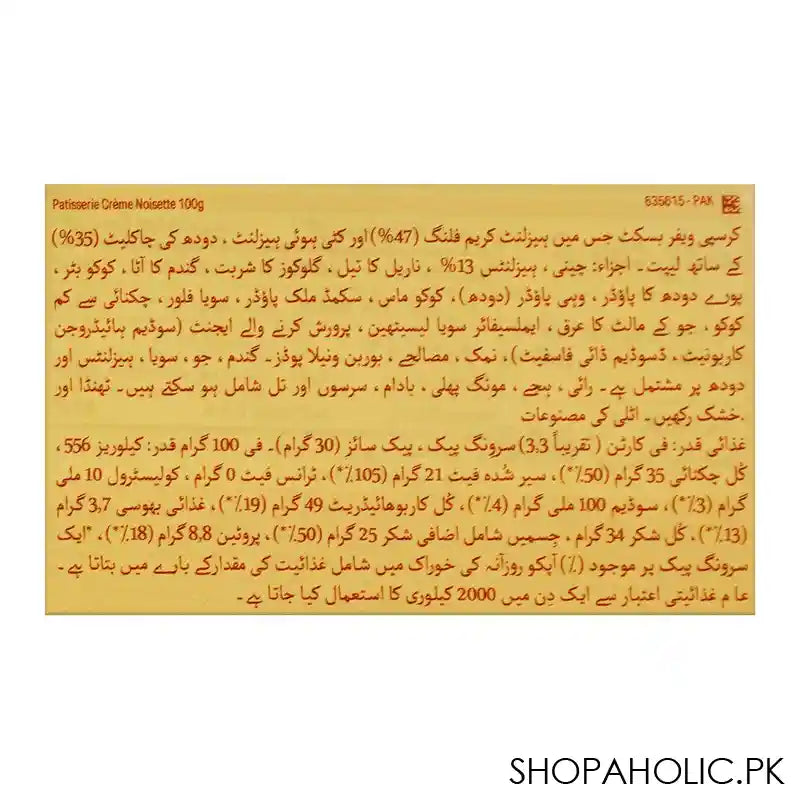 Patisserie Crème Noisette 100g
635615 - PAK
کرسپی ویفر بسکٹ جس میں ہیزلنٹ کریم فلنگ (47%) اور کٹی ہوئی ہیزلنٹ ، دودھ کی چاکلیٹ (35%)
کے ساتھ لپیٹ۔ اجزاء: چینی ، ہیزلنٹس 13% ، ناریل کا تیل ، گلوکوز کا شربت ، گندم کا آٹا ، کوکو بٹر ،
پورے دودھ کا پاؤڈر ، وہی پاؤڈر (دودھ)، کوکو ماس ، سکمڈ ملک پاؤڈر ، سویا فلور ، چکنائی سے کم
کوکو ، جو کے مالٹ کا عرق ، ایملسیفائر سویا لیسیتھین ، پرورش کرنے والے ایجنٹ (سوڈیم ہائیڈروجن
کاربونیٹ ، ڈسوڈیم ڈائی فاسفیٹ) ، نمک ، مصالحے ، بوربن ونیلا پوڈز۔ گندم ، جو ، سویا ، ہیزلنٹس اور
دودھ پر مشتمل ہے۔ رائی ، ہیجے ، مونگ پھلی ، بادام ، سرسوں اور تل شامل ہو سکتے ہیں۔ ٹھنڈا اور
خشک رکھیں۔ اٹلی کی مصنوعات.
غذائی قدر: فی کارٹن ( تقریباً 3.3) سرونگ پیک ، پیک سائز (30 گرام)۔ فی 100 گرام قدر: کیلوریز 556،
کُل چکنائی 35 گرام (50٪*)، سیر شُدہ فیٹ 21 گرام (105٪*)، ٹرانس فیٹ 0 گرام ، کولیسٹرول 10 ملی
گرام (3٪*)، سوڈیم 100 ملی گرام (4٪*)، کُل کاربوھائیڈریٹ 49 گرام (19٪*)، غذائی بھوسی 3,7 گرام
(13٪*)، کُل شکر 34 گرام ، جِسمیں شامل اضافی شکر 25 گرام (50٪*)، پروٹین 8,8 گرام (18٪*)، *ایک
سرونگ پیک پر موجود (٪) آپکو روزآنہ کی خوراک میں شامل غذائیت کی مقدارکے بارے میں بتاتا ہے۔
عا م غذائیتی اعتبار سے ایک دِن میں 2000 کیلوری کا استعمال کیا جاتا ہے۔
SHOPAHOLIC.PK